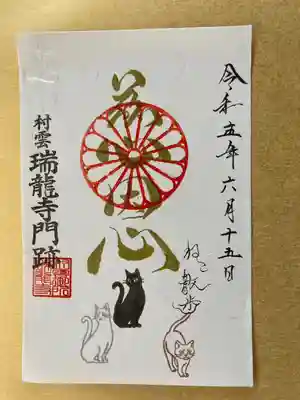 令和五年六月十五日
ねこ散歩
慈悲心
村雲
瑞龍寺門跡